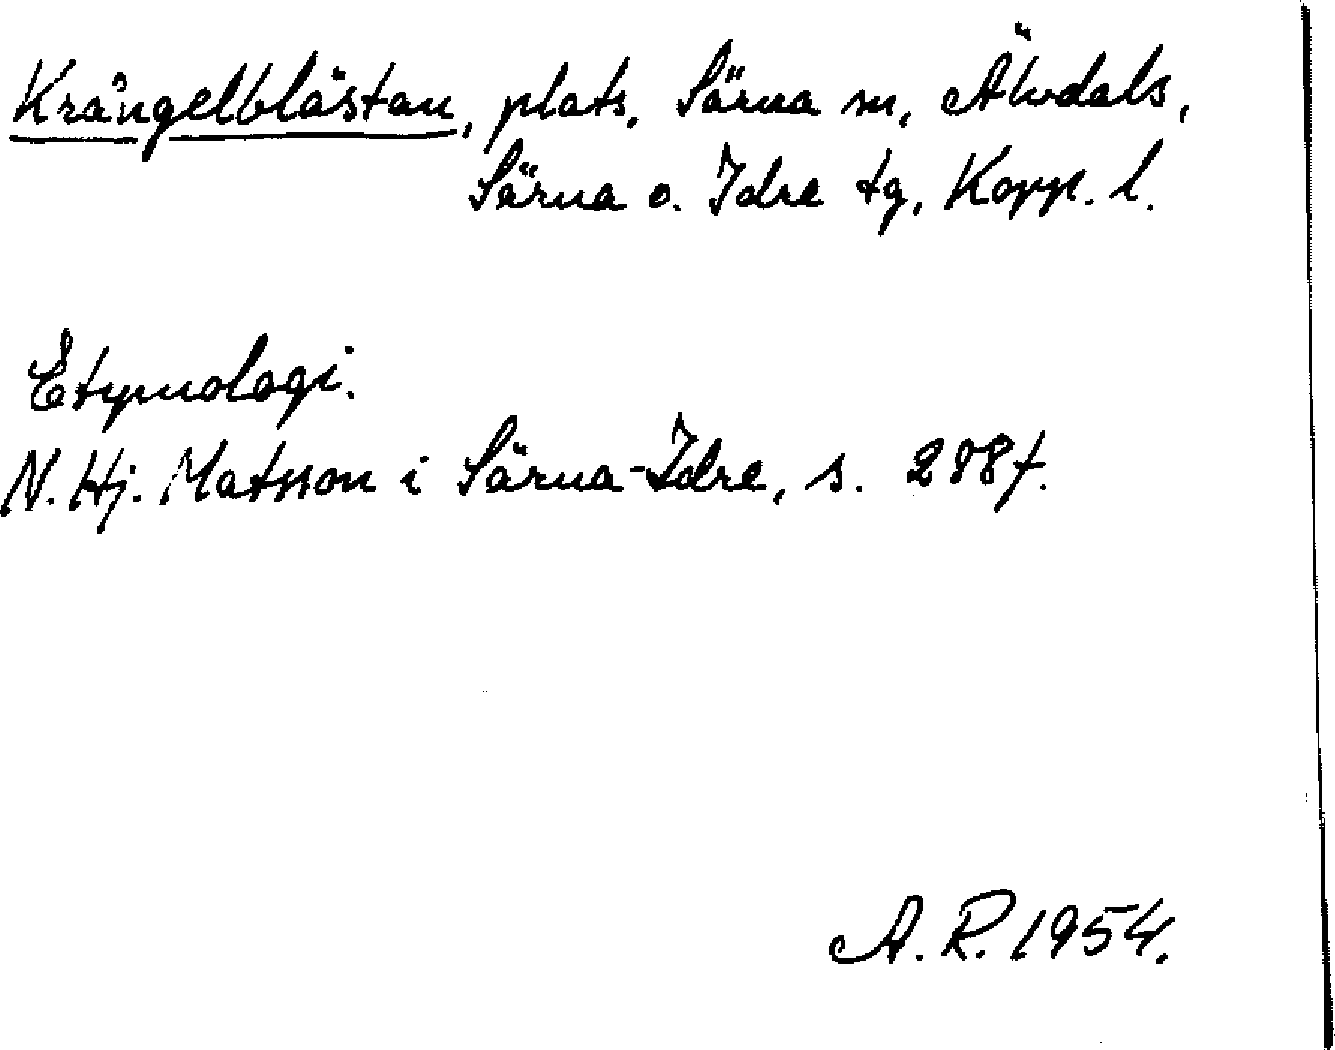 Krångelblåstan, plats, Särna sn, Älvdals,
Särna o. Idre tg, Kopp. l.
Etymologi.
N. Hj. Matsson i Särna-Idre, s. 288f.
A. R. 1954.